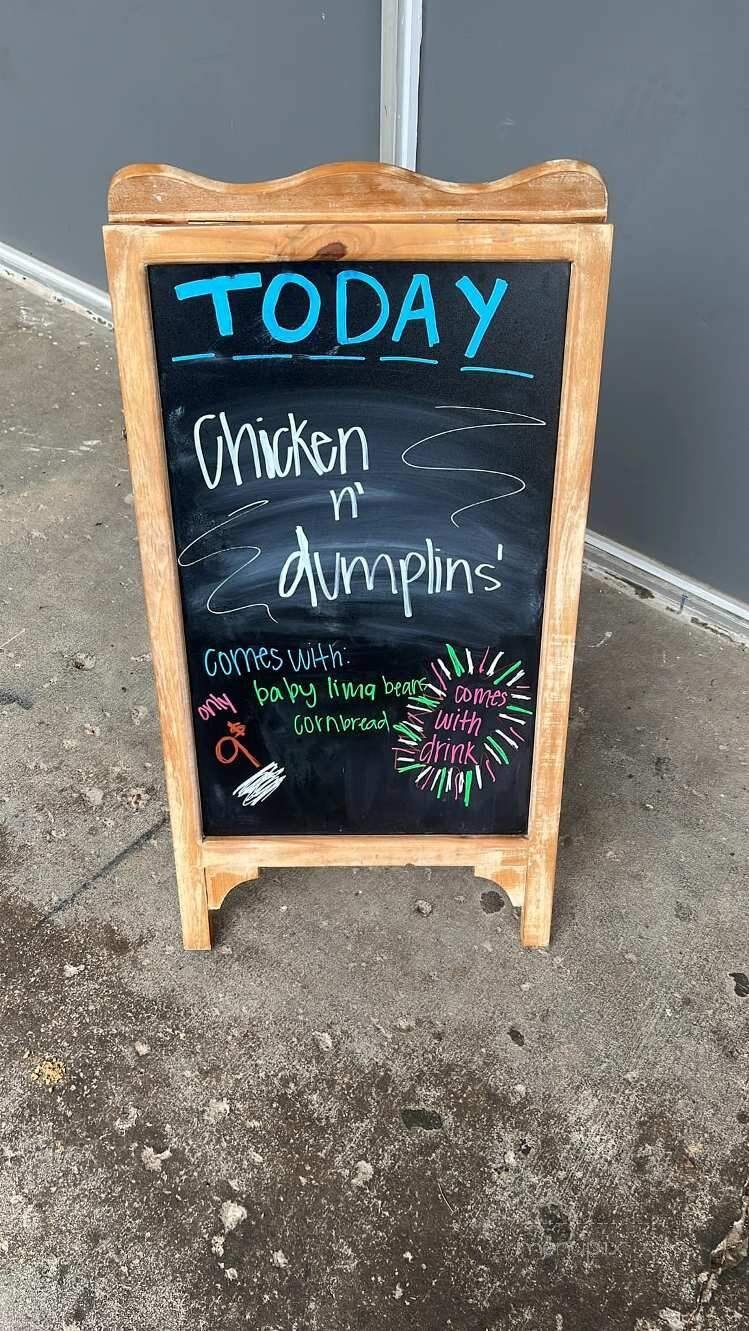 TODAY
Chicken
n'
dumplins'
comes with:
baby lima beans
cornbread
only
9$
comes
with
drink
menupix